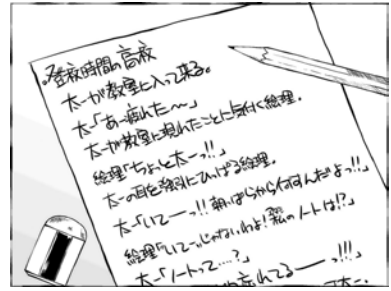 登校時間の高校
太一が教室に入って来る。
太一「あ〜疲れた〜」
太一が教室に現れたことに気付く絵理。
絵理「ちょっと太一っ!!」
太一の耳を強引にひっぱる絵理。
太一「いてーっ!!朝っぱらから何すんだよっ!!」
絵理「いてーっじゃないわよ!私のノートは!?」
太一「ノートって…?」
忘れてるーーっ!!!」